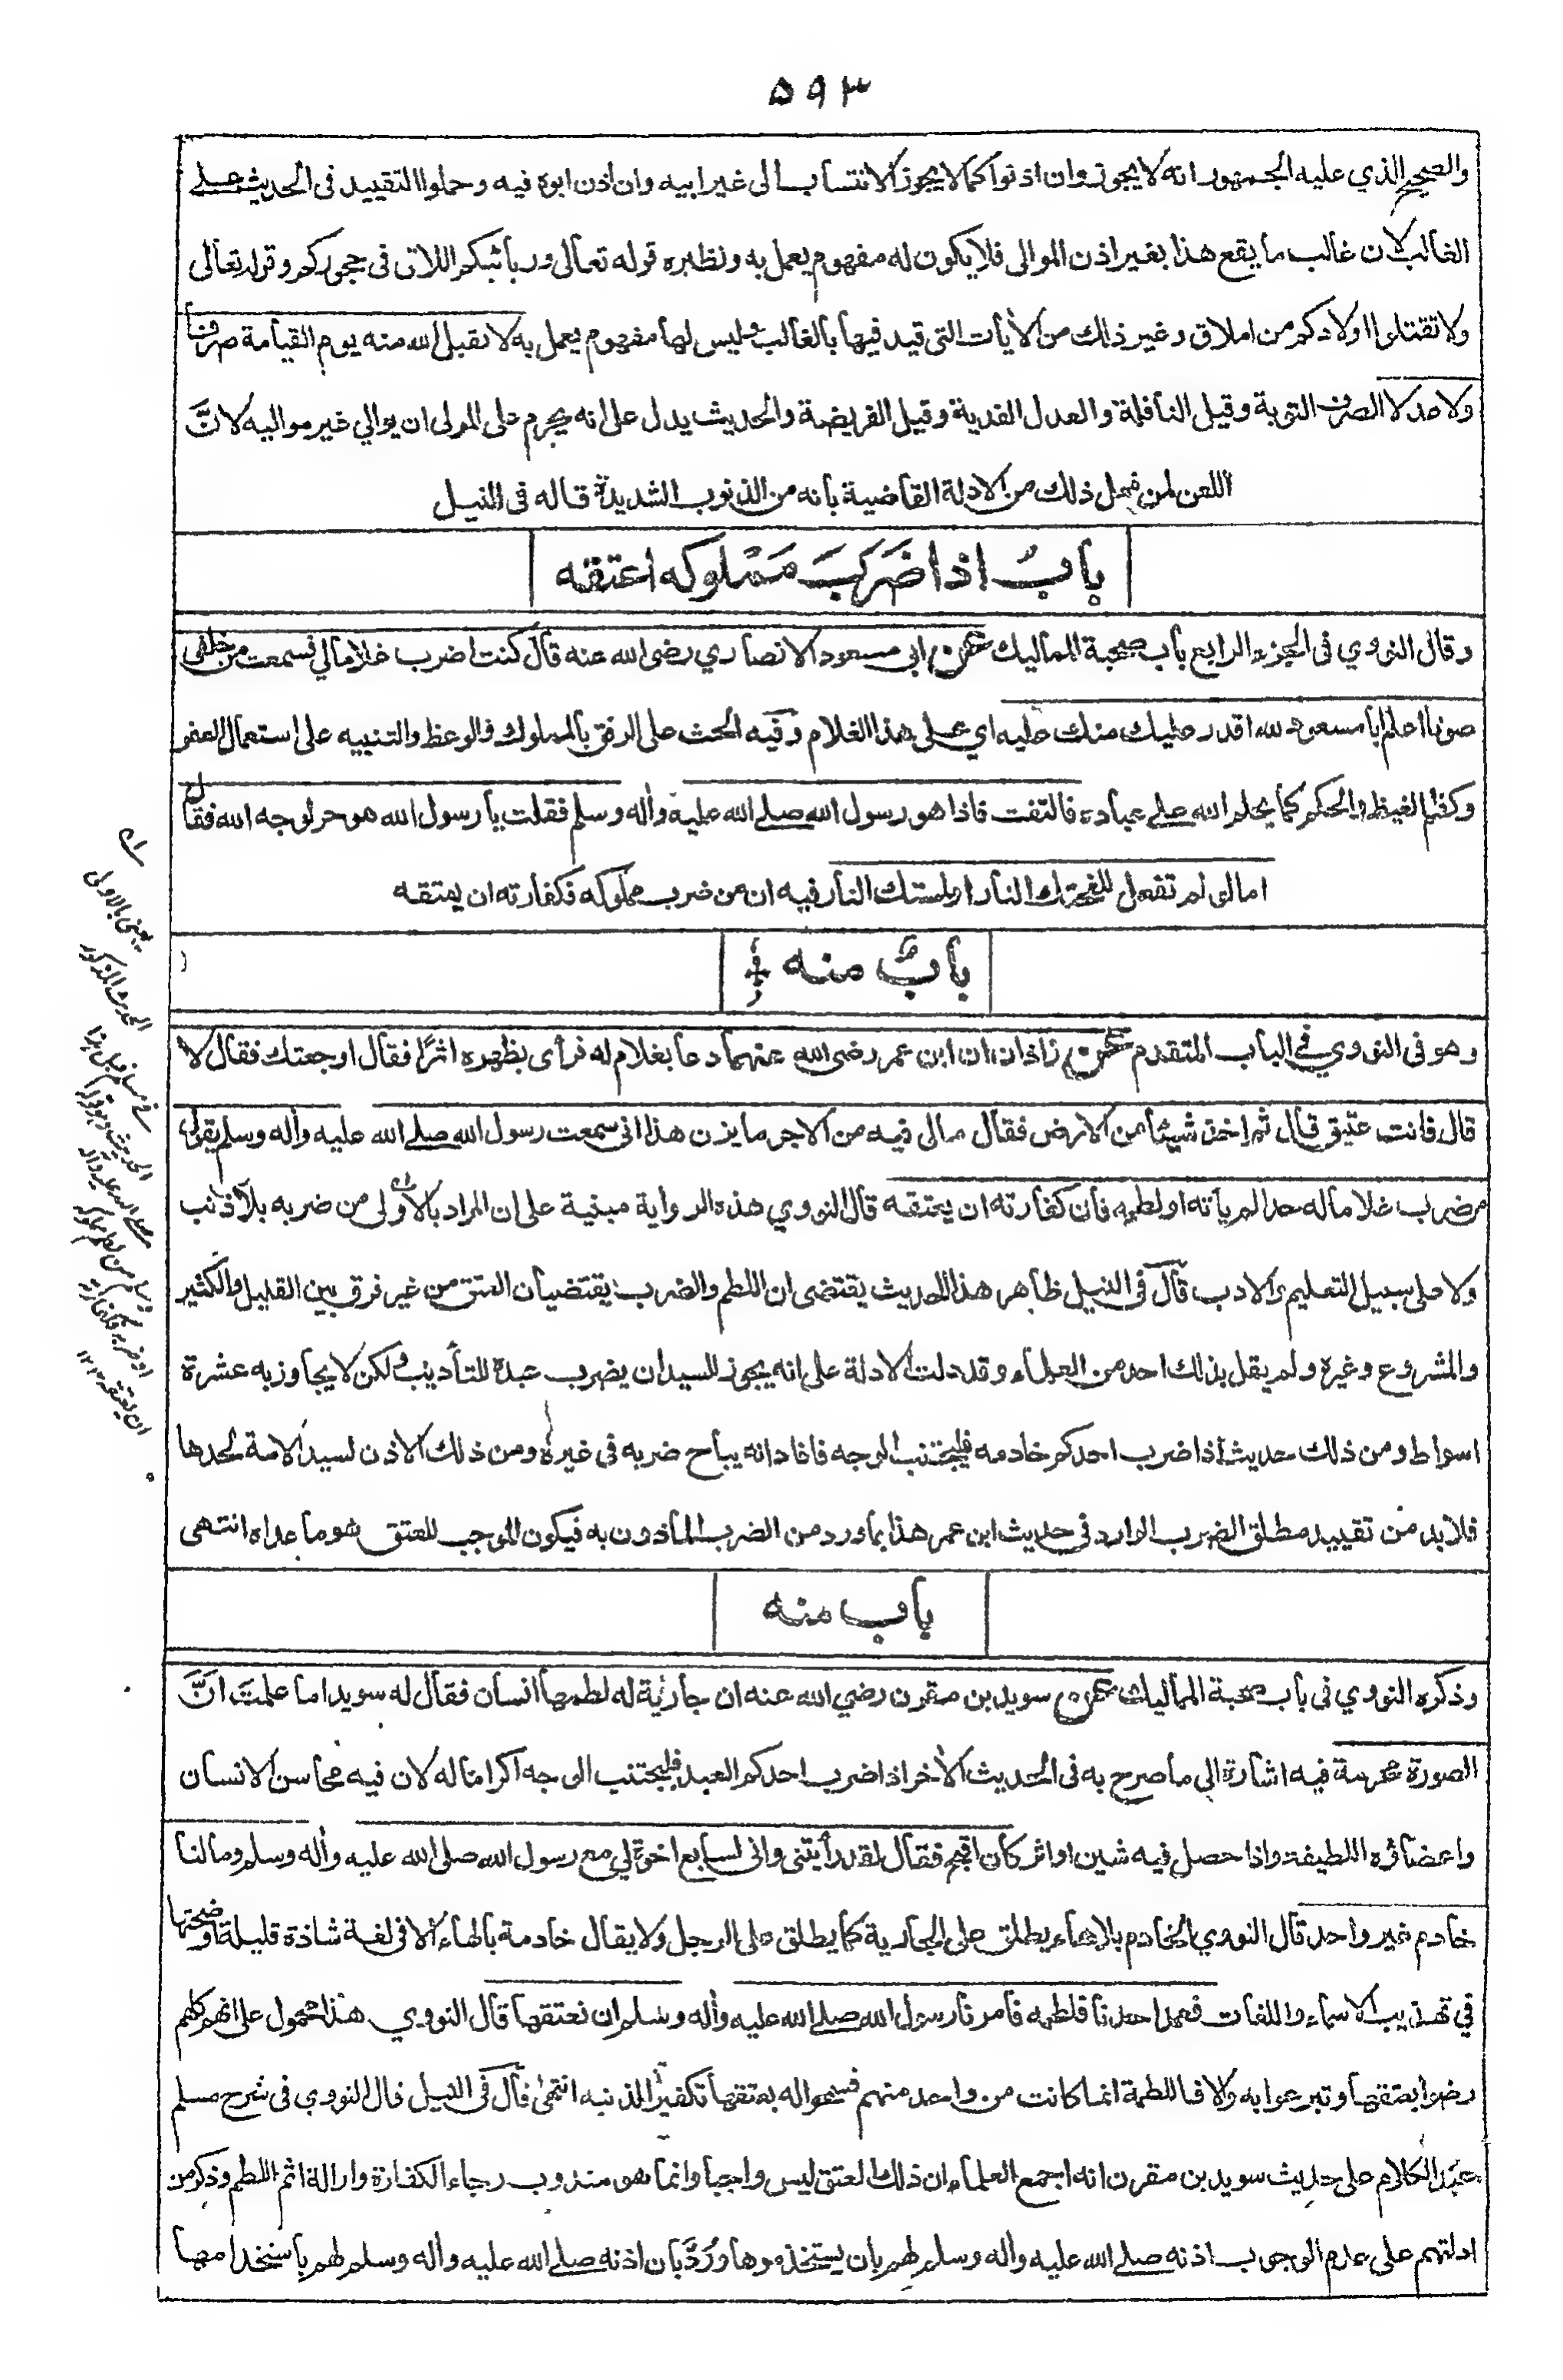 ۵۹۳
والصحيح الذي عليه الجمهور انه لا يجوز وان اذنوا كما لا يجوز الانتساب الى غير ابيه وان اذن ابوه فيه وحملوا التقييد فى الحديث على
الغالب لان غالب ما يقع هذا بغير اذن الموالى فلا يكون له مفهوم يعمل به ونظيره قوله تعالى وربائبكم اللاتى فى حجوركم وقوله تعالى
ولا تقتلوا اولادكم من املاق وغير ذلك من الأيات التى قيد فيها بالغالب وليس لها مفهوم يعمل به لا يقبل الله منه يوم القيامة صرفا
ولا عدلا الصرف التوبة وقيل النافلة والعدل الفدية وقيل الفريضة والحديث يدل على انه يحرم على المولى ان يوالي غير مواليه لانَّ
اللعن لمن فعل ذلك من الادلة القاضية بانه من الذنوب الشديدة قاله فى النيل
بابٌ اذا ضَرَبَ مَمْلوكه اعتقه
وقال النووي فى الجزء الرابع باب صحبة المماليك عن ابى مسعود الانصاري رضى الله عنه قال كنت اضرب غلاما لي فسمعت من خلفى
صوتا اعلم ابا مسعود لله اقدر عليك منك عليه اي على هذا الغلام وفيه الحث على الرفق بالمملوك والوعظ والتنبيه على استعمال العفو
وكظم الغيظ والحكم كما يحلم الله على عباده فالتفت فاذا هو رسول الله صلے الله عليه وأله وسلم فقلت يا رسول الله هو حر لوجه الله فقال
اما لو لم تفعل للفحتك النار او لمستك النار فيه ان من ضرب مملوكه فكفارته ان يعتقه
بابٌ منه
وهو فى النووي فى الباب المتقدم عن زاذان ان ابن عمر رضى الله عنهما دعا بغلام له فرأى بظهره اثرًا فقال اوجعتك فقال لا
قال فانت عتيق قال ثم اخذ شيئا من الارض فقال مالى فيه من الاجر ما يزن هذا انى سمعت رسول الله صلے الله عليه وأله وسلم يقول
من ضرب غلاما له حدا لم يأته او لطمه فان كفارته ان يعتقه قال النووي هذه الرواية مبنية على ان المراد بالاولى من ضربه بلا ذنب
ولا على سبيل التعليم والادب قال فى النيل ظاهر هذا الحديث يقتضى ان اللطم والضرب يقتضيان العتق من غير فرق بين القليل والكثير
والمشروع وغيره ولم يقل بذلك احد من العلماء وقد دلت الادلة على انه يجوز للسيد ان يضرب عبده للتأديب ولكن لا يجاوز به عشرة
اسواط ومن ذلك حديث اذا ضرب احدكم خادمه فليجتنب الوجه فافاد انه يباح ضربه فى غيره ومن ذلك الاذن لسيد الامة لحدها
فلا بد من تقييد مطلق الضرب الوارد فى حديث ابن عمر هذا بما ورد من الضرب المأذون به فيكون الموجب للعتق هو ما عداه انتهى
باب منه
وذكره النووي فى باب صحبة المماليك عن سويد بن مقرن رضي الله عنه ان جارية له لطمها انسان فقال له سويد اما علمتَ انَّ
الصورة محرمة فيه اشارة الى ما صرح به فى الحديث الأخر اذا ضرب احدكم العبد فليجتنب الوجه اكراما له لان فيه محاسن الانسان
واعضائه اللطيفة واذا حصل فيه شين او اثر كان اقبح فقال لقد رأيتنى وانى لسابع اخوة لي مع رسول الله صلى الله عليه وأله وسلم وما لنا
خادم غير واحد قال النووي الخادم بلا هاء يطلق على الجارية كما يطلق على الرجل ولا يقال خادمة بالهاء الا فى لغة شاذة قليلة اوضحتها
في تهذيب الاسماء واللغات فعمد احدنا فلطمه فامرنا رسول الله صلے الله عليه وأله وسلم ان نعتقها قال النووي هذا محمول على انهم كلهم
رضوا بعتقها وتبرعوا به والا فاللطمة انما كانت من واحد منهم فسمحوا له بعتقها تكفيرا لذنبه انتهى قال فى النيل قال النووي فى شرح مسلم
عند الكلام على حديث سويد بن مقرن انه اجمع العلماء ان ذلك العتق ليس واجبا وانما هو مندوب رجاء الكفارة وازالة اثم اللطم وذكر من
ادلتهم على عدم الوجوب اذنه صلے الله عليه وأله وسلم لهم بان يستخدموها ورُدَّ بان اذنه صلے الله عليه وأله وسلم لهم باستخدامها
يعنى بالاولى
الحديث المذكور
فى مسلم قبل هذا